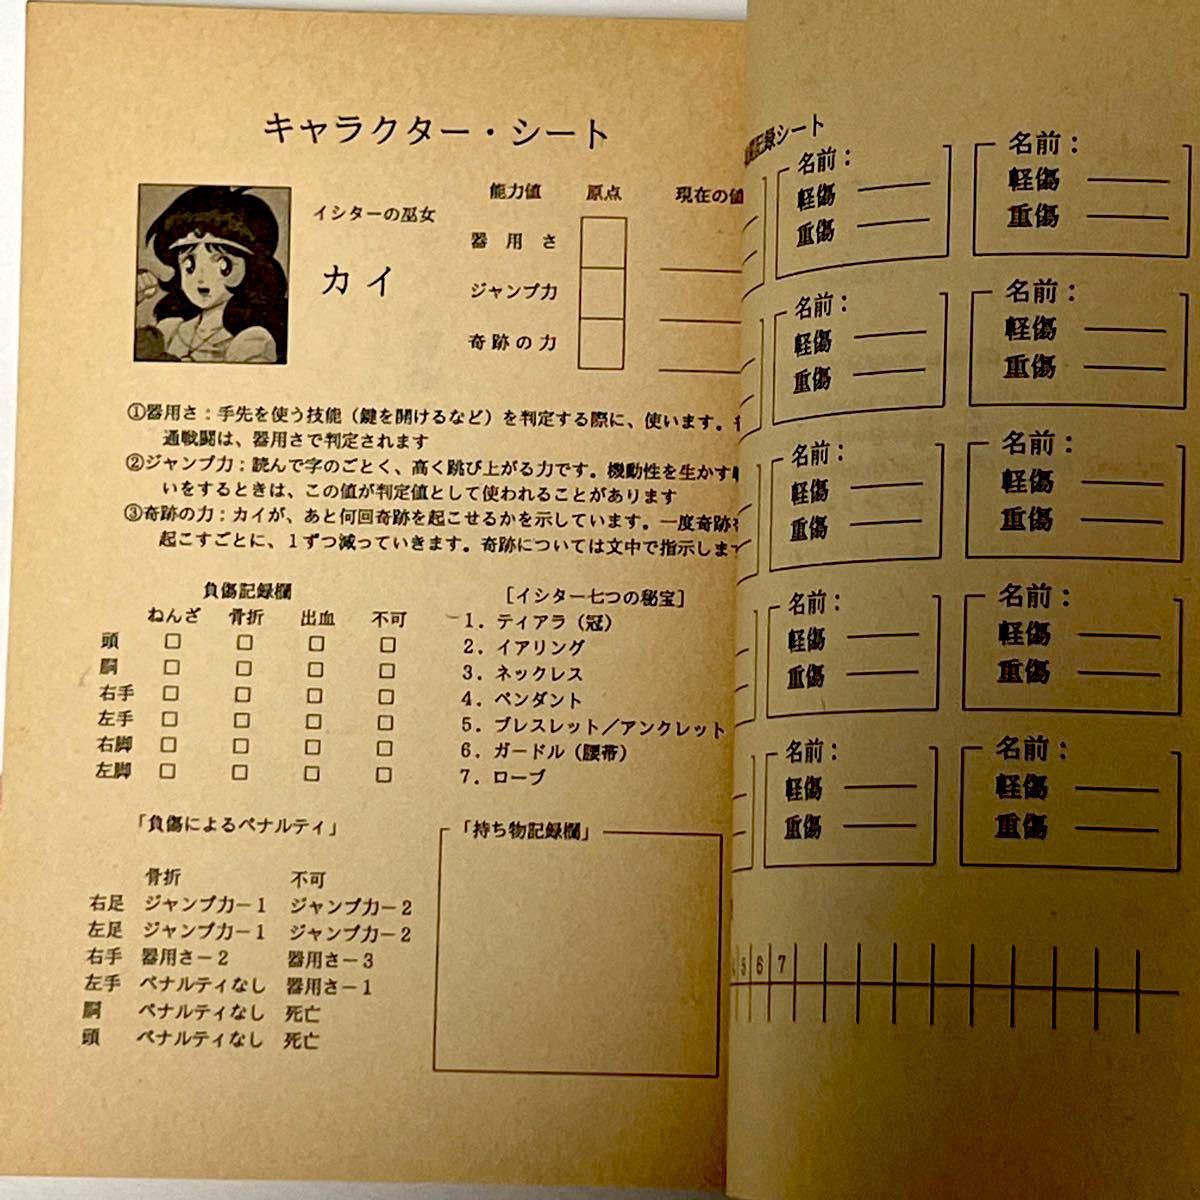 キャラクター・シート
イシターの巫女
カイ
能力値 原点 現在の値
器用さ
ジャンプ力
奇跡の力
①器用さ：手先を使う技能（鍵を開けるなど）を判定する際に、使います。
通戦闘は、器用さで判定されます
②ジャンプ力：読んで字のごとく、高く跳び上がる力です。機動性を生かす
いをするときは、この値が判定値として使われることがあります
③奇跡の力：カイが、あと何回奇跡を起こせるかを示しています。一度奇跡を
起こすごとに、１ずつ減っていきます。奇跡については文中で指示します
負傷記録欄
ねんざ 骨折 出血 不可
頭 □ □ □ □
胴 □ □ □ □
右手 □ □ □ □
左手 □ □ □ □
右脚 □ □ □ □
左脚 □ □ □ □
［イシター七つの秘宝］
1．ティアラ（冠）
2．イアリング
3．ネックレス
4．ペンダント
5．ブレスレット／アンクレット
6．ガードル（腰帯）
7．ローブ
「負傷によるペナルティ」
骨折 不可
右足 ジャンプ力－1 ジャンプ力－2
左足 ジャンプ力－1 ジャンプ力－2
右手 器用さ－2 器用さ－3
左手 ペナルティなし 器用さ－1
胴 ペナルティなし 死亡
頭 ペナルティなし 死亡
「持ち物記録欄」
録シート
名前：
軽傷
重傷
名前：
軽傷
重傷
名前：
軽傷
重傷
名前：
軽傷
重傷
名前：
軽傷
重傷
名前：
軽傷
重傷
名前：
軽傷
重傷
名前：
軽傷
重傷
名前：
軽傷
重傷
名前：
軽傷
重傷
5 6 7